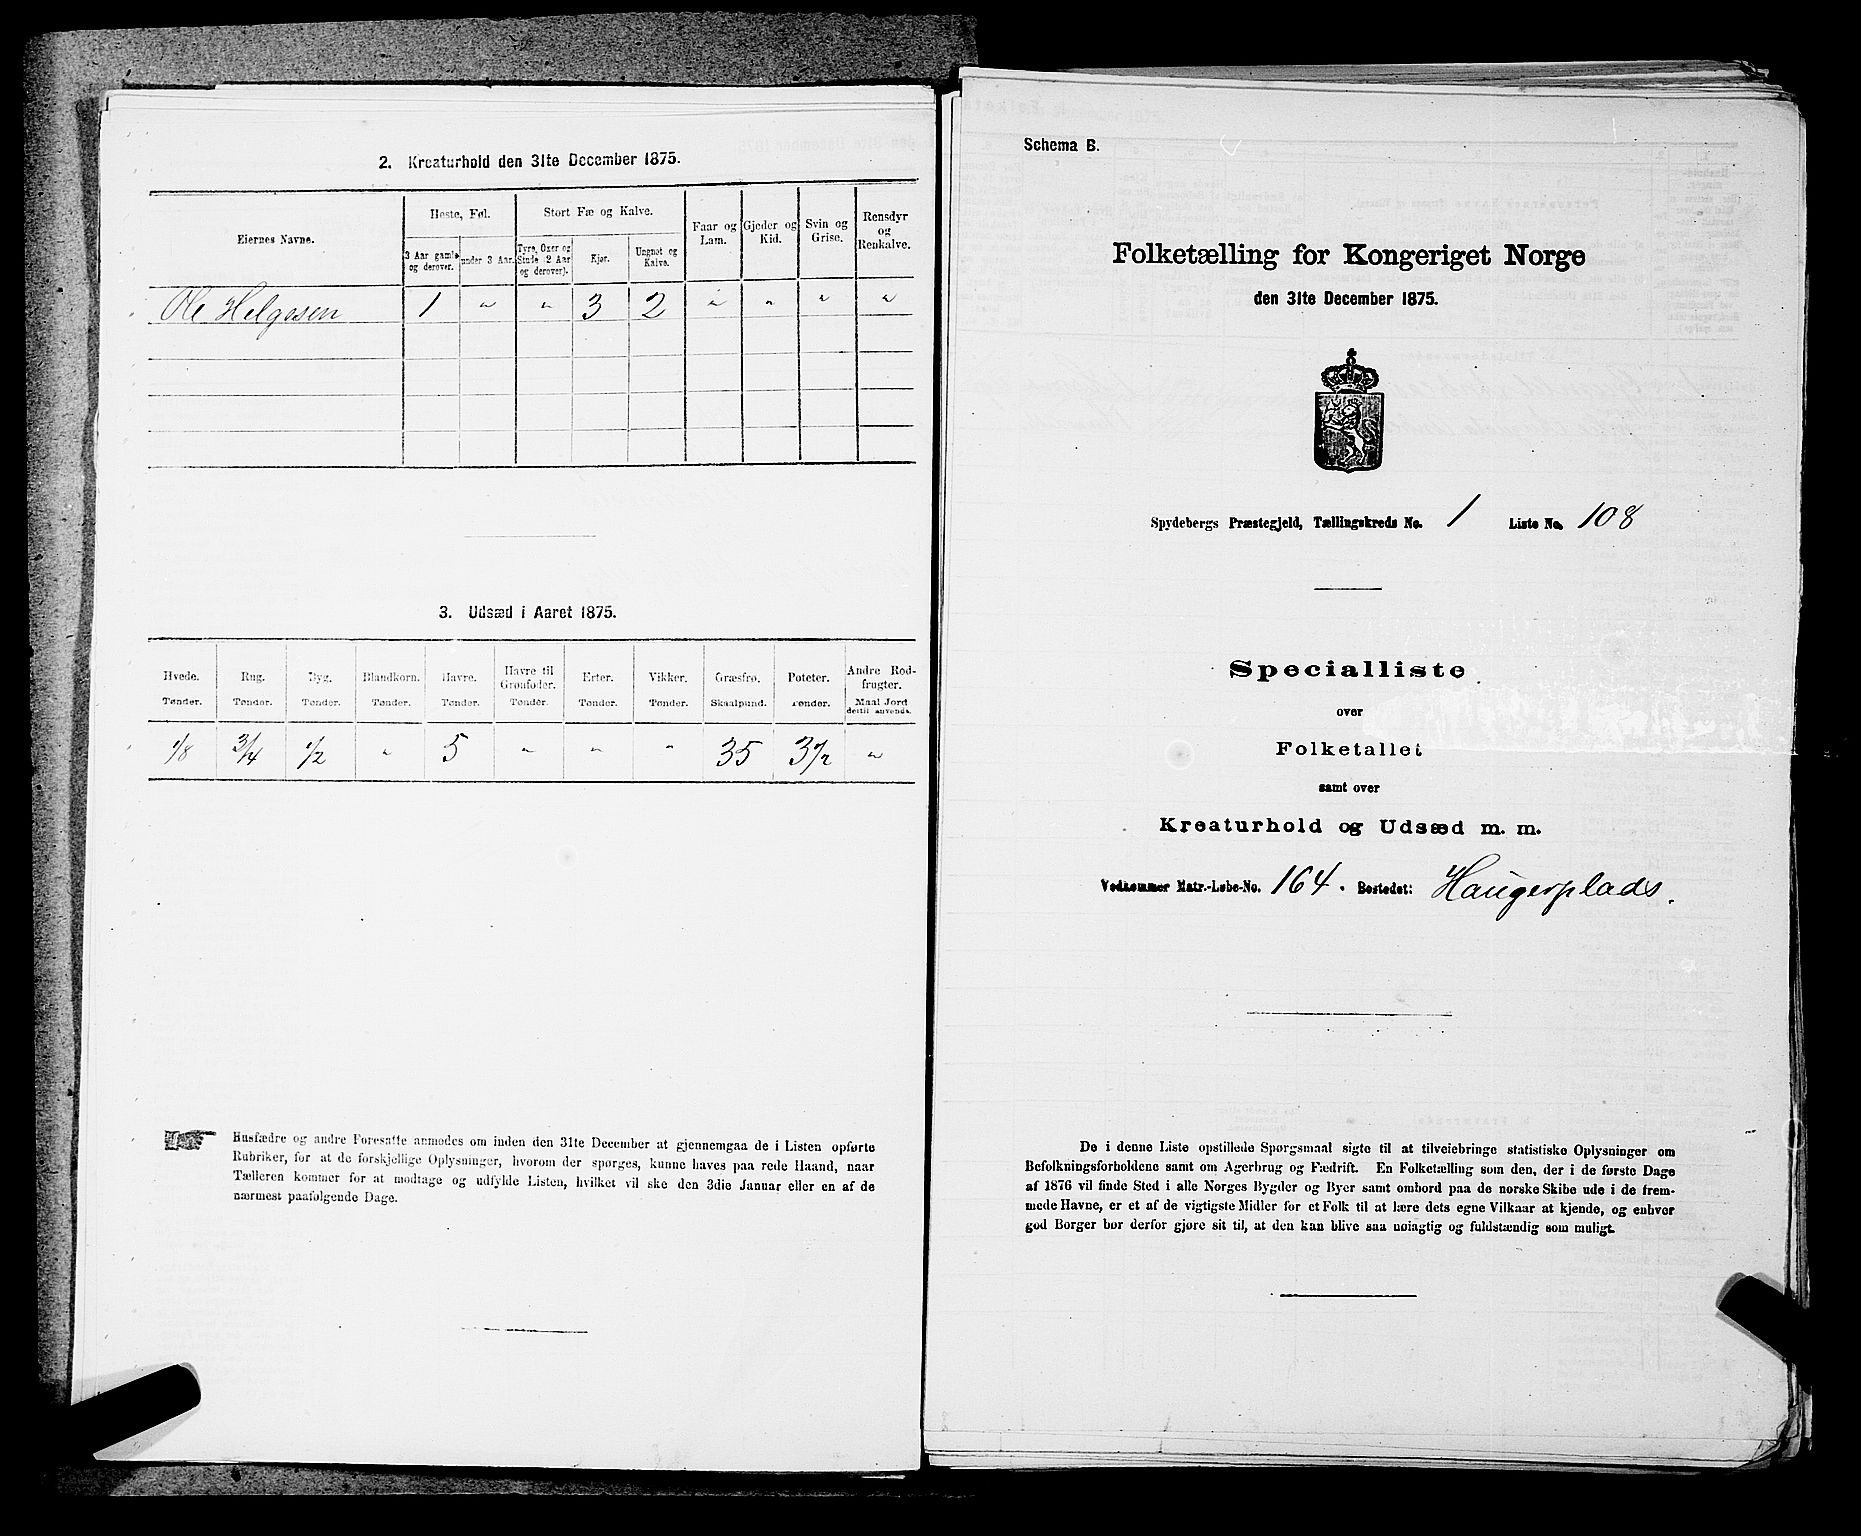 2. Kreaturhold den 31te December 1875.
Eiernes Navne.
Heste, Føl.
Stort Fæ og Kalve.
Faar og Lam.
Gjeder og Kid.
Svin og Grise.
Rensdyr og Renkalve.
3 Aar gamle og derover.
under 3 Aar.
Tyre, Oxer og Stude (2 Aar og derover).
Kjør.
Ungnøt og Kalve.
Ole Helgesen 1 " " 3 2 " " " "
3. Udsæd i Aaret 1875.
Hvede. Rug. Byg. Blandkorn. Havre. Havre til Grønfoder. Erter. Vikker. Græsfrø. Poteter. Andre Rodfrugter.
Tønder. Tønder. Tønder. Tønder. Tønder. Tønder. Tønder. Tønder. Skaalpund. Tønder. Maal Jord dertil anvendt.
1/8 3/4 1/2 " 5 " " " 35 3 1/2 "
Husfædre og andre Foresatte anmodes om inden den 31te December at gjennemgaa de i Listen opførte
Rubriker, for at de forskjellige Oplysninger, hvorom der spørges, kunne haves paa rede Haand, naar
Tælleren kommer for at modtage og udfylde Listen, hvilket vil ske den 3die Januar eller en af de
nærmest paafølgende Dage.
Schema B.
Folketælling for Kongeriget Norge
den 31te December 1875.
Spydebergs Præstegjeld, Tællingskreds No. 1 Liste No. 108
Specialliste
over
Folketallet
samt over
Kreaturhold og Udsæd m. m.
Vedkommer Matr.-Løbe-No. 164. Bostedet: Haugerplads.
De i denne Liste opstillede Spørgsmaal sigte til at tilveiebringe statistiske Oplysninger om
Befolkningsforholdene samt om Agerbrug og Fædrift. En Folketælling som den, der i de første Dage
af 1876 vil finde Sted i alle Norges Bygder og Byer samt ombord paa de norske Skibe ude i de frem-
mede Havne, er et af de vigtigste Midler for et Folk til at lære dets egne Vilkaar at kjende, og enhver
god Borger bør derfor gjøre sit til, at den kan blive saa nøiagtig og fuldstændig som muligt.